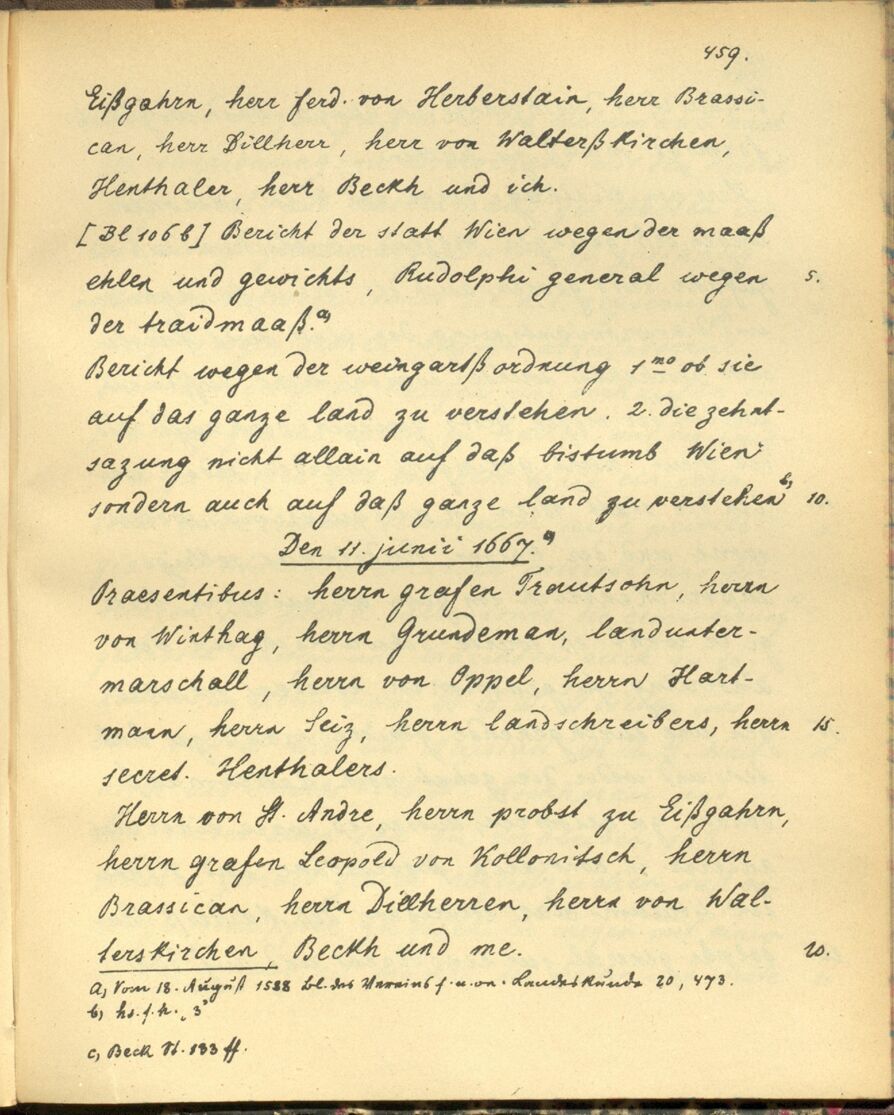 459.
Eißgahrn, herr ferd. von Herberstain, herr Brassi-
can, herr Dillherr, herr von Walterßkirchen,
Henthaler, herr Beckh und ich.
[Bl 106 b] Bericht der statt Wien wegen der maaß
ehlen und gewichts, Rudolphi general wegen 5.
der traidmaaß.a)
Bericht wegen der weingartßordnung 1mo ob sie
auf das ganze land zu verstehen. 2. die zehnt-
sazung nicht allain auf daß bistumb Wien
sondern auch auf daß ganze land zu verstehen b) 10.
Den 11. junii 1667. c)
Praesentibus: herrn grafen Trautsohn, herrn
von Winthag, herrn Grundeman, landunter-
marschall, herrn von Oppel, herrn Hart-
mann, herrn Seiz, herrn landschreibers, herrn 15.
secret. Henthalers.
Herrn von St. Andre, herrn probst zu Eißgahrn,
herrn grafen Leopold von Kollonitsch, herrn
Brassican, herrn Dillherren, herrn von Wal-
terskirchen, Beckh und me. 20.
a) Vom 18. August 1588 Bl. des Vereins f. n. ön. Landeskunde 20, 473.
b) hs. f. h. „3"
c) Beck St. 133 ff.